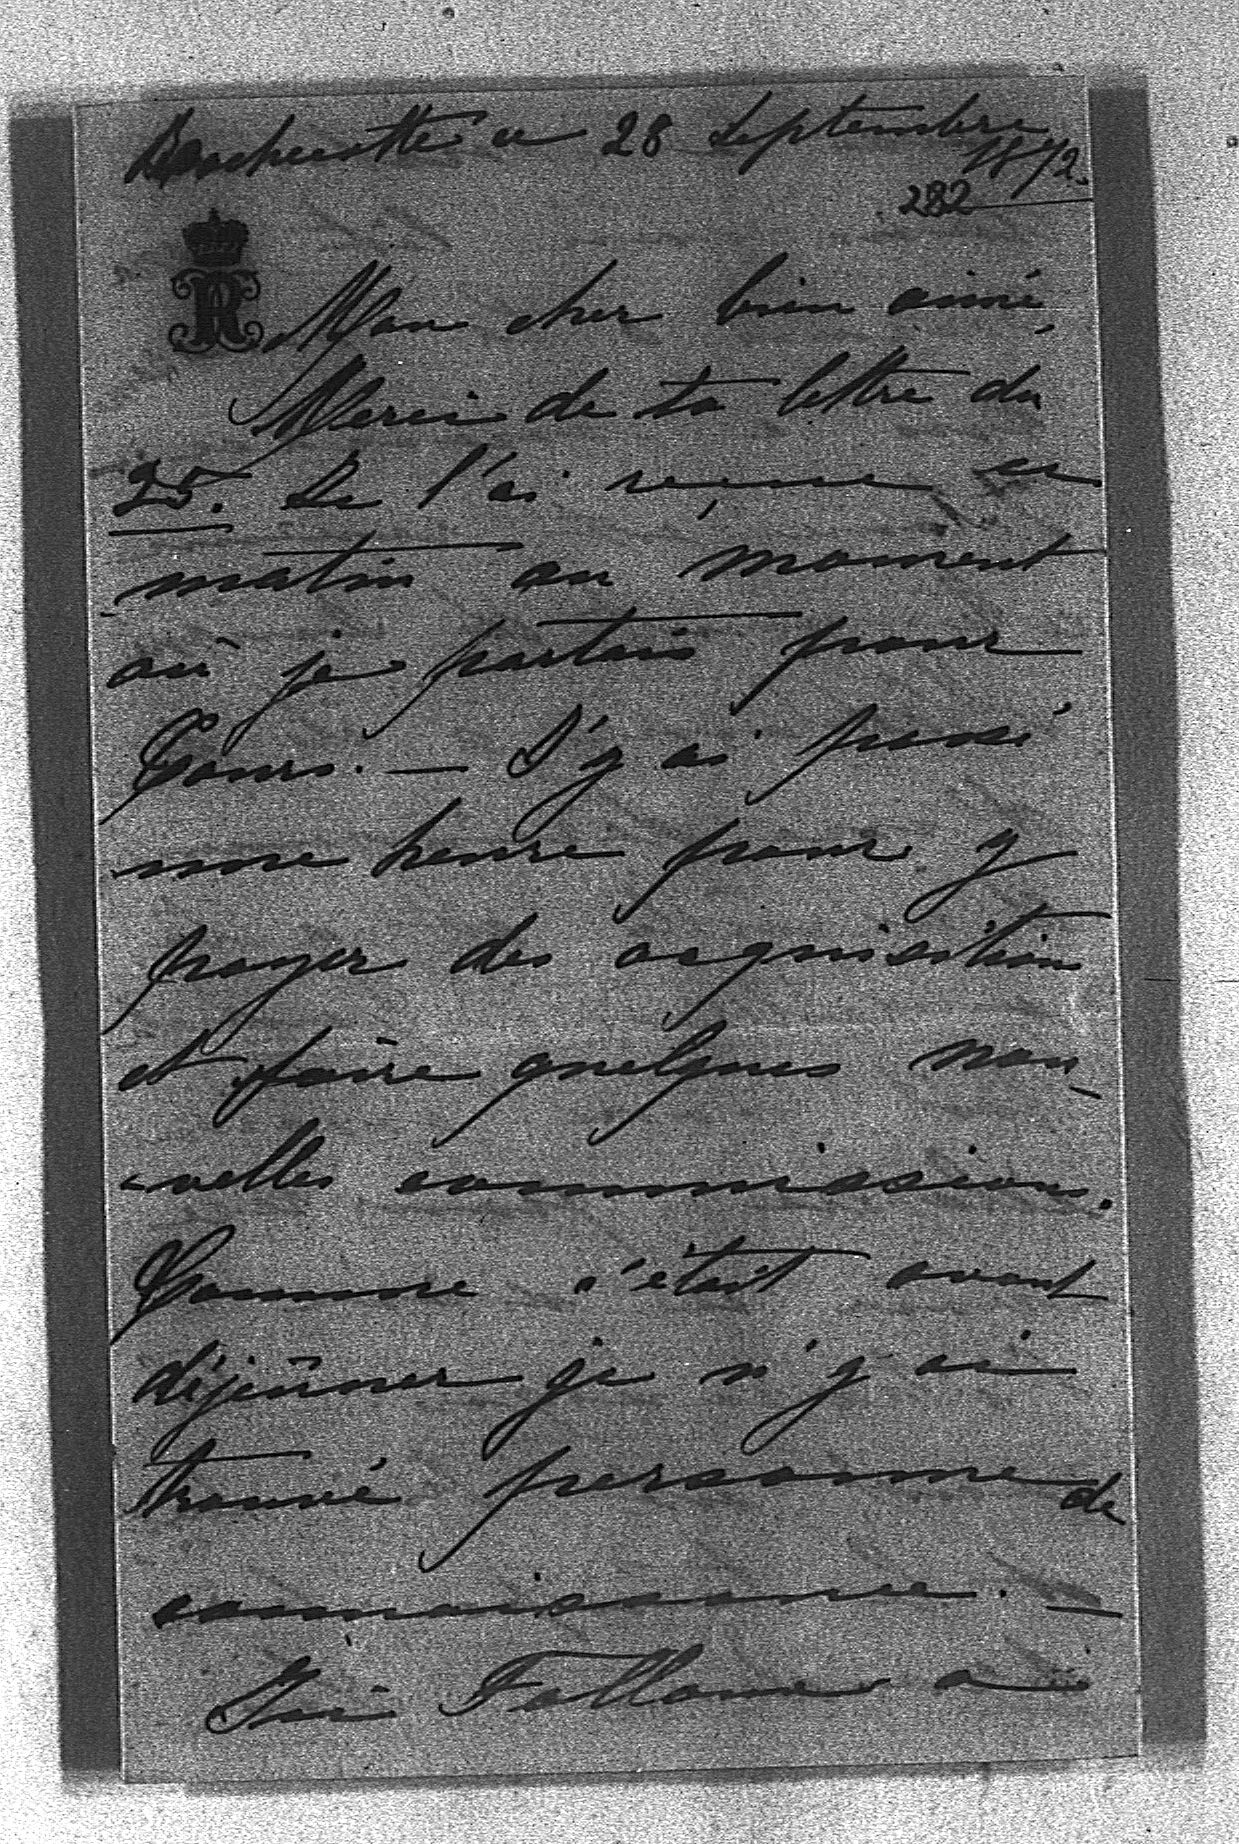 Rochecotte ce 28 Septembre
1872.
282
R
Mon cher bien aimé,
Merci de ta lettre du
25. Je l'ai reçue ce
matin au moment
où je partais pour
Tours. — J'y ai passé
une heure pour y
payer des acquisitions
et faire quelques nou-
-velles commissions.
Comme c'était avant
déjeûner je n'y ai
trouvé personne de
connaissance. —
Ici Falloux a